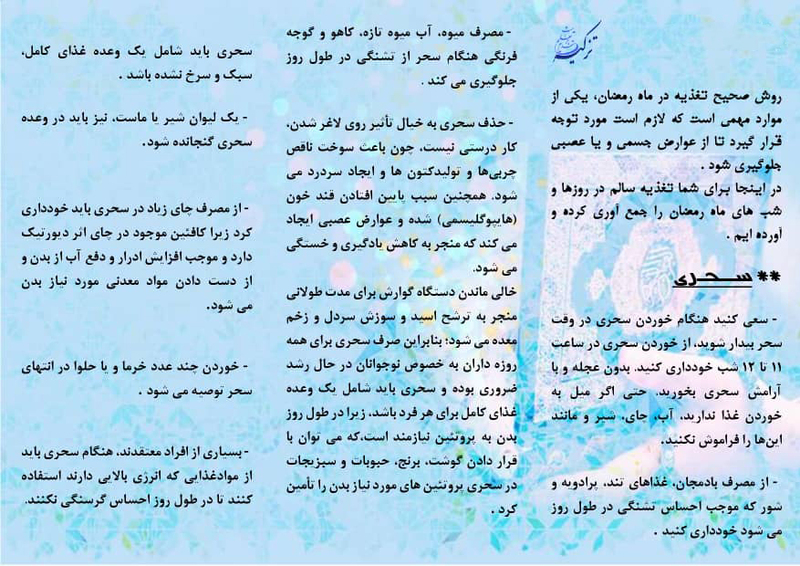 تزکیه
روش صحیح تغذیه در ماه رمضان، یکی از
موارد مهمی است که لازم است مورد توجه
قرار گیرد تا از عوارض جسمی و یا عصبی
جلوگیری شود .
در اینجا برای شما تغذیه سالم در روزها و
شب های ماه رمضان را جمع آوری کرده و
آورده ایم .
** سـحـری
- سعی کنید هنگام خوردن سحری در وقت
سحر بیدار شوید، از خوردن سحری در ساعت
۱۱ تا ۱۲ شب خودداری کنید. بدون عجله و با
آرامش سحری بخورید. حتی اگر میل به
خوردن غذا ندارید، آب، چای، شیر و مانند
این‌ها را فراموش نکنید.
- از مصرف بادمجان، غذاهای تند، پرادویه و
شور که موجب احساس تشنگی در طول روز
می شود خودداری کنید .
- مصرف میوه، آب میوه تازه، کاهو و گوجه
فرنگی هنگام سحر از تشنگی در طول روز
جلوگیری می کند .
- حذف سحری به خیال تأثیر روی لاغر شدن،
کار درستی نیست، چون باعث سوخت ناقص
چربی‌ها و تولیدکتون ها و ایجاد سردرد می
شود. همچنین سبب پایین افتادن قند خون
(هایپوگلیسمی) شده و عوارض عصبی ایجاد
می کند که منجر به کاهش یادگیری و خستگی
می شود.
خالی ماندن دستگاه گوارش برای مدت طولانی
منجر به ترشح اسید و سوزش سردل و زخم
معده می شود؛ بنابراین صرف سحری برای همه
روزه داران به خصوص نوجوانان در حال رشد
ضروری بوده و سحری باید شامل یک وعده
غذای کامل برای هر فرد باشد، زیرا در طول روز
بدن به پروتئین نیازمند است،که می توان با
قرار دادن گوشت، برنج، حبوبات و سبزیجات
در سحری پروتئین های مورد نیاز بدن را تأمین
کرد .
سحری باید شامل یک وعده غذای کامل،
سبک و سرخ نشده باشد .
- یک لیوان شیر یا ماست، نیز باید در وعده
سحری گنجانده شود.
- از مصرف چای زیاد در سحری باید خودداری
کرد زیرا کافئین موجود در چای اثر دیورتیک
دارد و موجب افزایش ادرار و دفع آب از بدن و
از دست دادن مواد معدنی مورد نیاز بدن
می شود.
- خوردن چند عدد خرما و یا حلوا در انتهای
سحر توصیه می شود .
- بسیاری از افراد معتقدند، هنگام سحری باید
از موادغذایی که انرژی بالایی دارند استفاده
کنند تا در طول روز احساس گرسنگی نکنند.